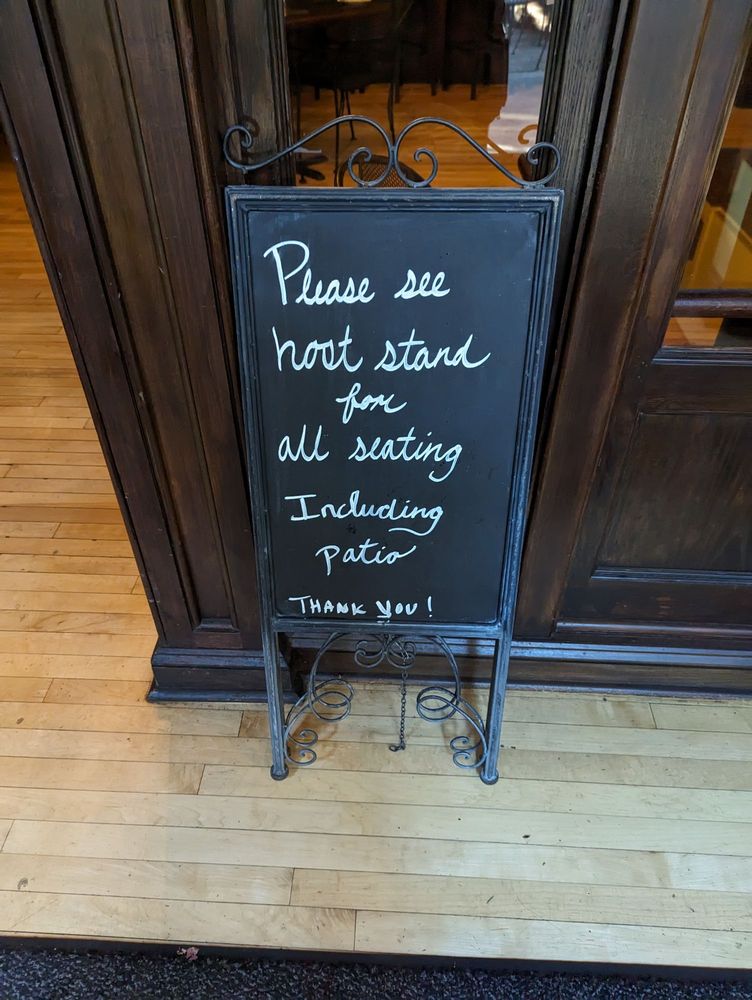 Please see
host stand
for
all seating
Including
patio
THANK YOU!